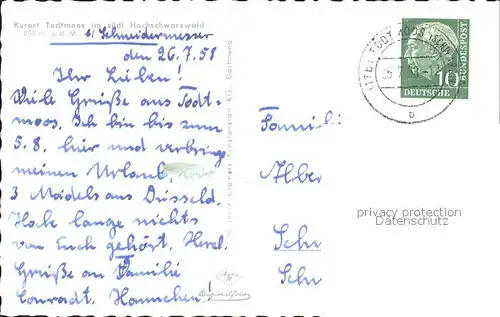 Kurort Todtmoos im südl Hochschwarzwald
850 m. ü. d. M.
b/ Schneidermesser
den 26.7.58
Ihr Lieben!
Viele Grüße aus Todt-
moos. Ich bin bis zum
5.8. hier und verbringe
meinen Urlaub,
3 Mädels aus Düsseld.
Habe lange nichts
von Euch gehört. Herzl.
Grüße an Familie
Conradt. Hannchen!
Famili
Alber
Schu
Schu
DEUTSCHE BUNDESPOST
10
b
privacy protection
DatenSchutz
Originalfoto